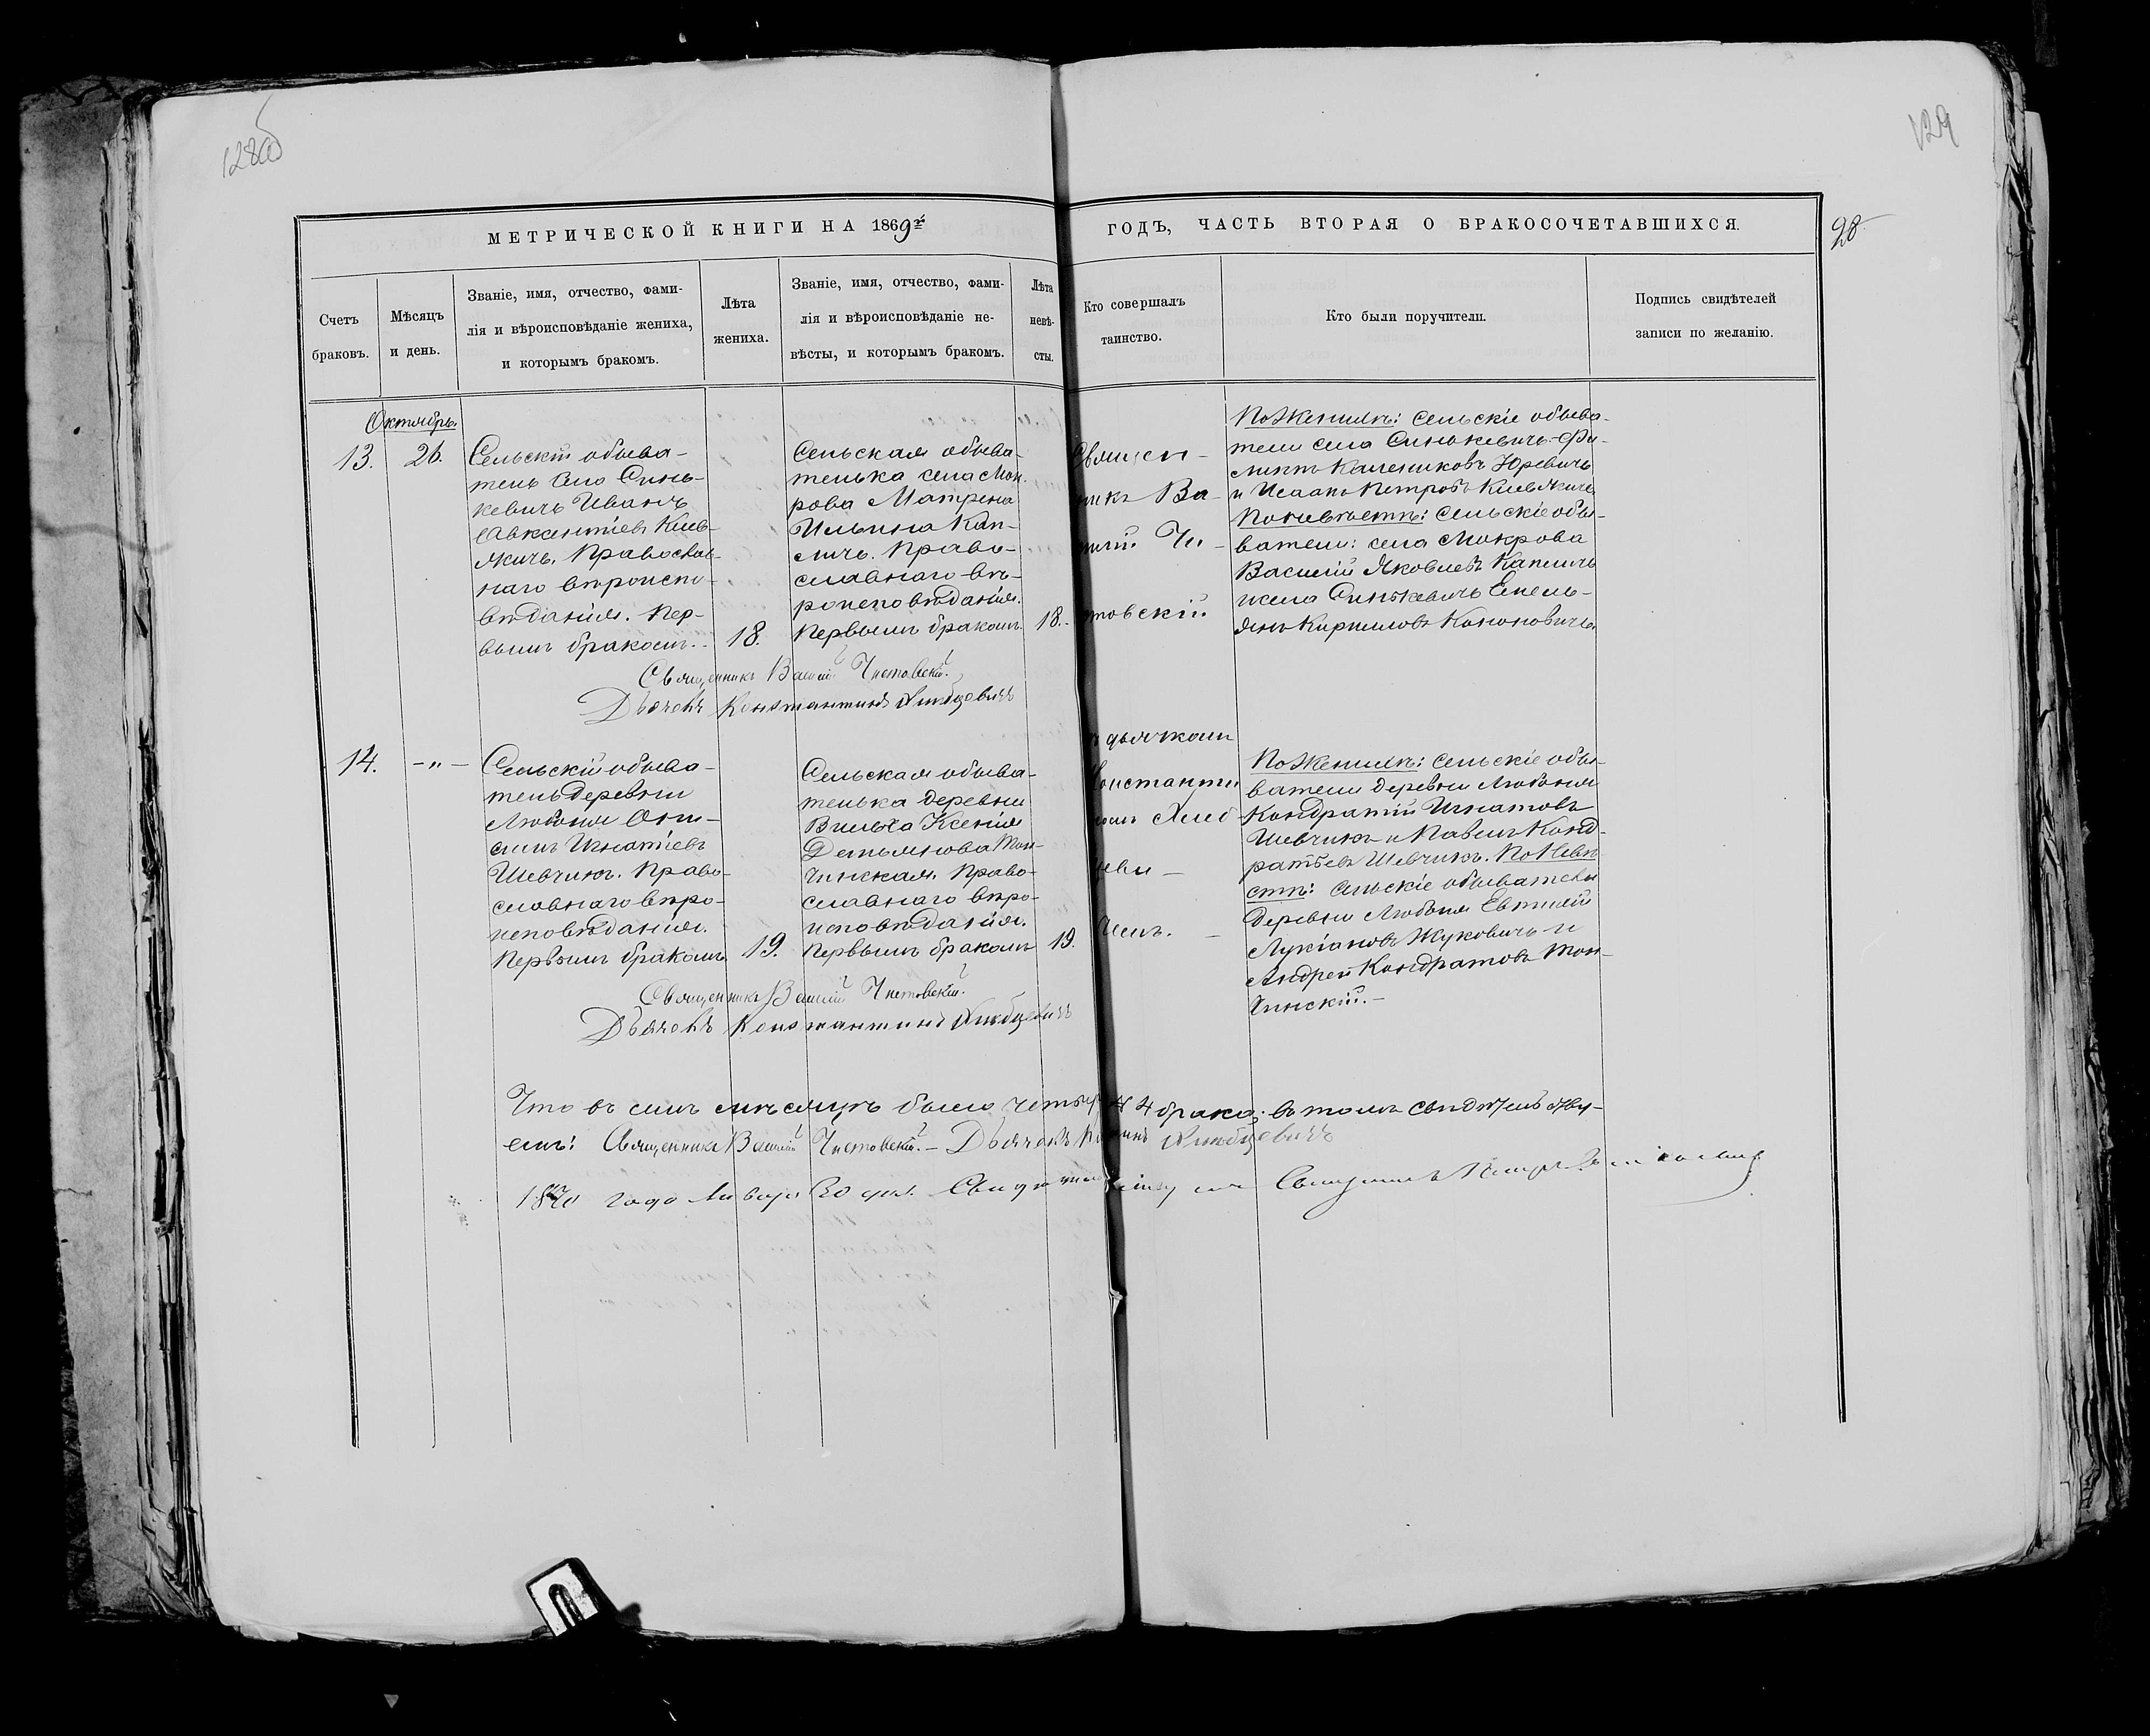 128об
129
МЕТРИЧЕСКОЙ КНИГИ НА 1869й
ГОДЪ, ЧАСТЬ ВТОРАЯ О БРАКОСОЧЕТАВШИХСЯ.
28
Счетъ
браковъ.
Мѣсяцъ
и день.
Званіе, имя, отчество, фами-
лія и вѣроисповѣданіе жениха,
и которымъ бракомъ.
Лѣта
жениха.
Званіе, имя, отчество, фами-
лія и вѣроисповѣданіе не-
вѣсты, и которымъ бракомъ.
Лѣта
невѣ-
сты.
Кто совершалъ
таинство.
Кто были поручители.
Подпись свидѣтелей
записи по желанію.
Октябрь.
13.
26.
Сельскій обыва-
тель села Синь-
кевичъ Иванъ
Авксентіевъ Киев-
якичъ. Православ-
наго вѣроиспо-
вѣданія. Пер-
вымъ бракомъ.
18.
Сельская обыва-
телька села Мок-
рова Матрена
Ильина Кап-
личъ. Право-
славнаго вѣ-
роисповѣданія.
Первымъ бракомъ.
18.
Священ-
никъ Ва-
силій Чи-
стовскій
По Женихѣ: Сельскіе обыва-
тели села Синькевичъ-Фи-
липпъ Калениковъ Юревичъ
и Исаакъ Петровъ Киевякичъ
По невѣстѣ: Сельскіе обы-
ватели: села Мокрова
Василій Яковлевъ Капличъ
и села Синькевичъ Емель-
янъ Кирилловъ Кононовичъ.
Священникъ Василій Чистовскій.
Дьячекъ Константинъ
14.
-"-
Сельскій обыва-
тель деревни
Любоня Они-
симъ Игнатіевъ
Шевчикъ. Право-
славнаго вѣро-
исповѣданія.
Первымъ бракомъ
19.
Сельская обыва-
телька деревни
Вильча Ксенія
Демьянова Тон-
чинская. Право-
славнаго вѣро-
исповѣданія.
Первымъ бракомъ
19.
съ дьячкомъ
Константи
номъ
чемъ.
По Женихѣ: Сельскіе обы-
ватели деревни Любоня
Кондратій Игнатовъ
Шевчикъ и Павелъ Конд-
ратьевъ Шевчикъ. По Невѣ
стѣ: Сельскіе обыватели
деревни Любоня Евтихій
Лукіановъ Жуковичъ и
Андрей Кондратовъ Тон-
чинскій.-
Священникъ Василій Чистовскій.
Дьячекъ Константинъ
Что въ семъ мѣсяцѣ было четыре 4 брака, въ томъ свидѣтельству-
емъ: Священникъ Василій Чистовскій.- Дьячекъ
1870 года Января 30 дня. Священникъ